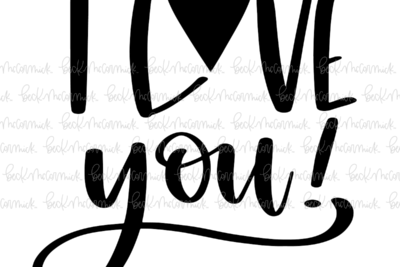 I L♥VE
you!